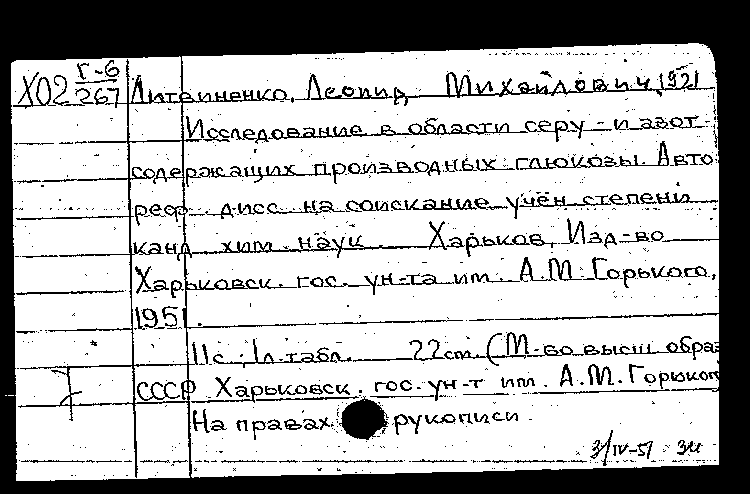 Х02 Г-6/267 Литвиненко, Леонид Михайлович, 1921
Исследование в области серу- и азот-
содержащих производных глюкозы. Авто
реф. дисс. на соискание учён степени
канд хим. наук. Харьков, Изд-во
Харьковск. гос. ун-та им. А.М. Горького,
1951.
11с.; 1л. табл. 22см. (М-во высш образ
СССР Харьковск. гос. ун-т им. А.М. Горьког
На правах рукописи
3/IV-51 ЗИ